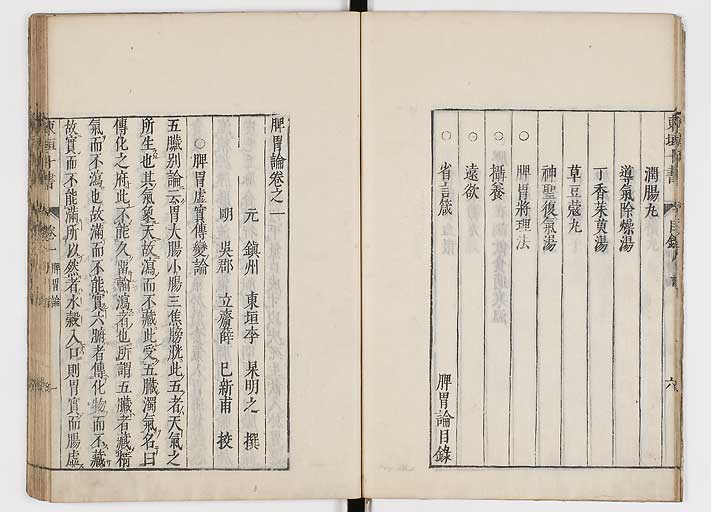 東垣十書
目錄
六
潤腸丸
導氣除燥湯
丁香茱萸湯
草豆蔻丸
神聖復氣湯
○脾胃將理法
○攝養
○遠欲
○省言箴
脾胃論目錄
脾胃論卷之一
元 鎮州 東垣李 杲明之 撰
明 吳郡 立齋薛 己新甫 挍
○脾胃虛實傳變論
五臟別論云胃大腸小腸三焦膀胱此五者天氣之
所生也其氣象天故瀉而不藏此受五臟濁氣名曰
傳化之府此不能久留輸瀉者也所謂五臟者藏精
氣而不瀉也故滿而不能實六腑者傳化物而不藏
故實而不能滿所以然者水穀入口則胃實而腸虛
東垣十書
卷一
脾胃論
一